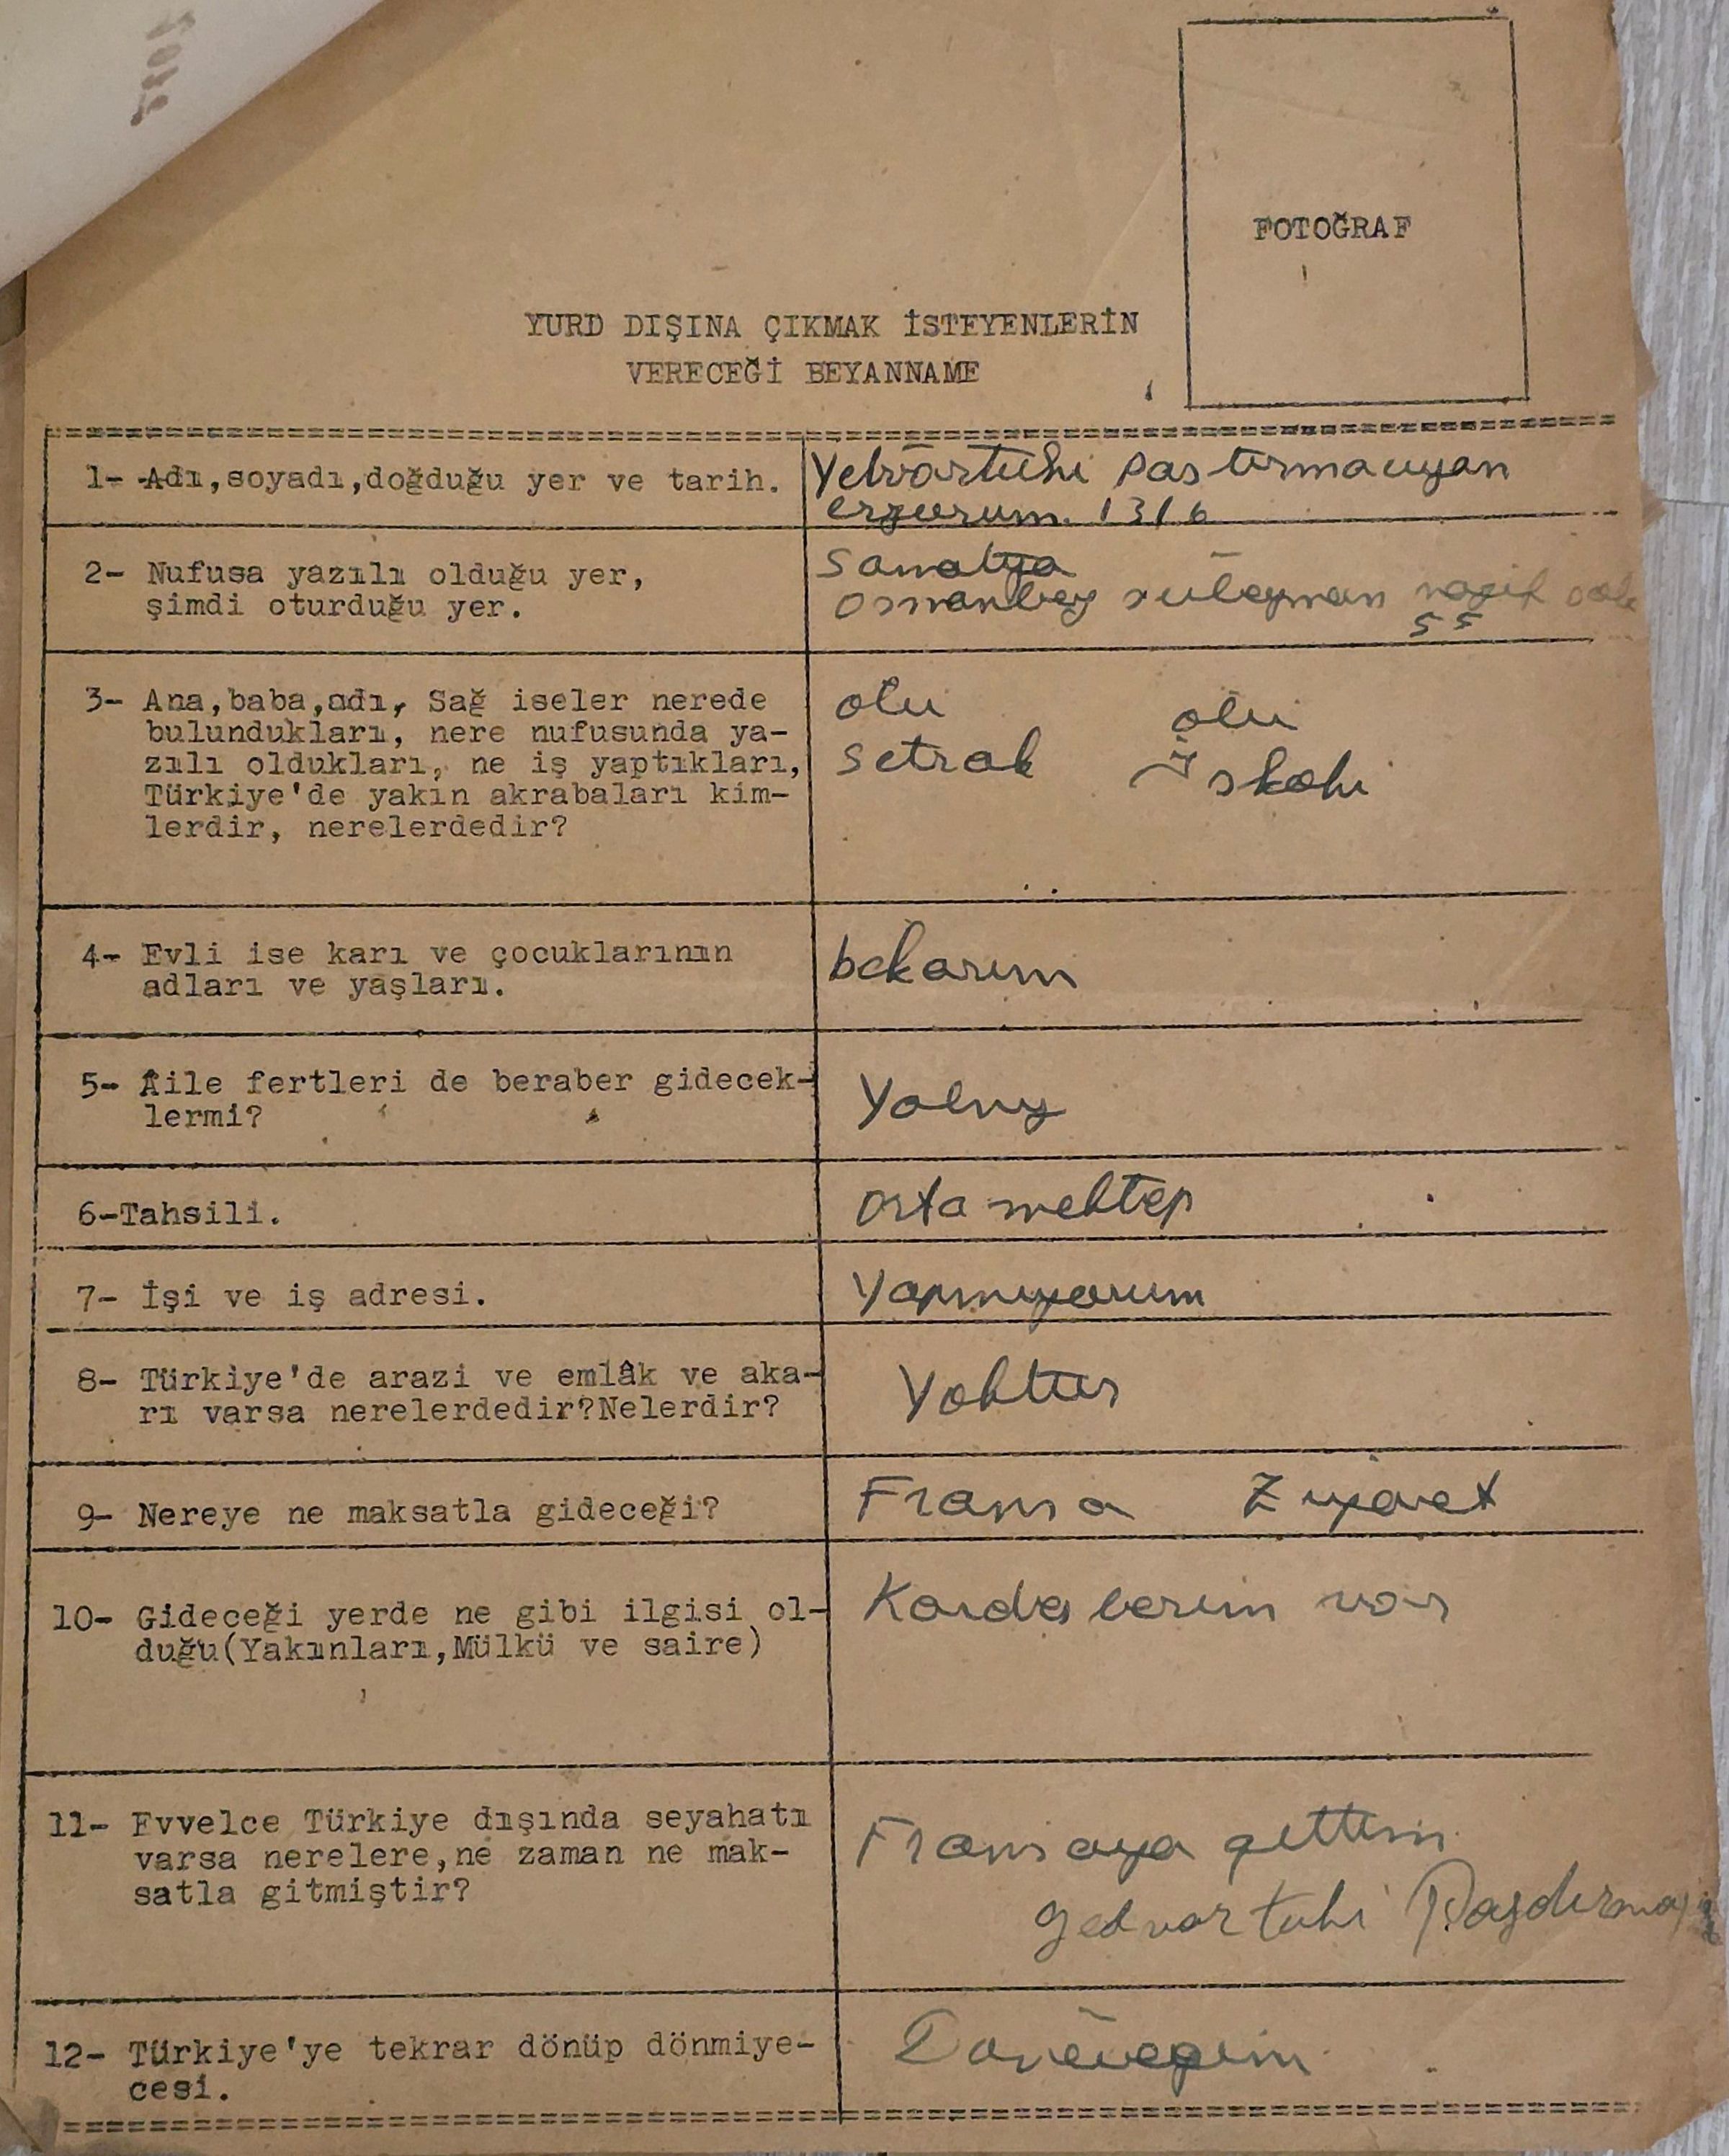 FOTOĞRAF
YURD DIŞINA ÇIKMAK İSTEYENLERİN
VERECEĞİ BEYANNAME
1- Adı,soyadı,doğduğu yer ve tarih.
Yetvartuhi Pastırmacıyan
erzurum. 1316
2- Nufusa yazılı olduğu yer,
şimdi oturduğu yer.
Samatya
Osmanbey süleyman nazif
55
3- Ana,baba,adı, Sağ iseler nerede
bulundukları, nere nufusunda ya-
zılı oldukları, ne iş yaptıkları,
Türkiye'de yakın akrabaları kim-
lerdir, nerelerdedir?
ölü ölü
Setrak İskohi
4- Evli ise karı ve çocuklarının
adları ve yaşları.
bekarım
5- Âile fertleri de beraber gidecek-
lermi?
Yalnız
6-Tahsili.
Orta mektep
7- İşi ve iş adresi.
Yapmıyorum
8- Türkiye'de arazi ve emlâk ve aka-
rı varsa nerelerdedir?Nelerdir?
Yoktur
9- Nereye ne maksatla gideceği?
Fransa Ziyaret
10- Gideceği yerde ne gibi ilgisi ol-
duğu(Yakınları,Mülkü ve saire)
Kardeslerim var
11- Evvelce Türkiye dışında seyahatı
varsa nerelere,ne zaman ne mak-
satla gitmiştir?
Fransaya gettim
yedvartuhi
12- Türkiye'ye tekrar dönüp dönmiye-
cesi.